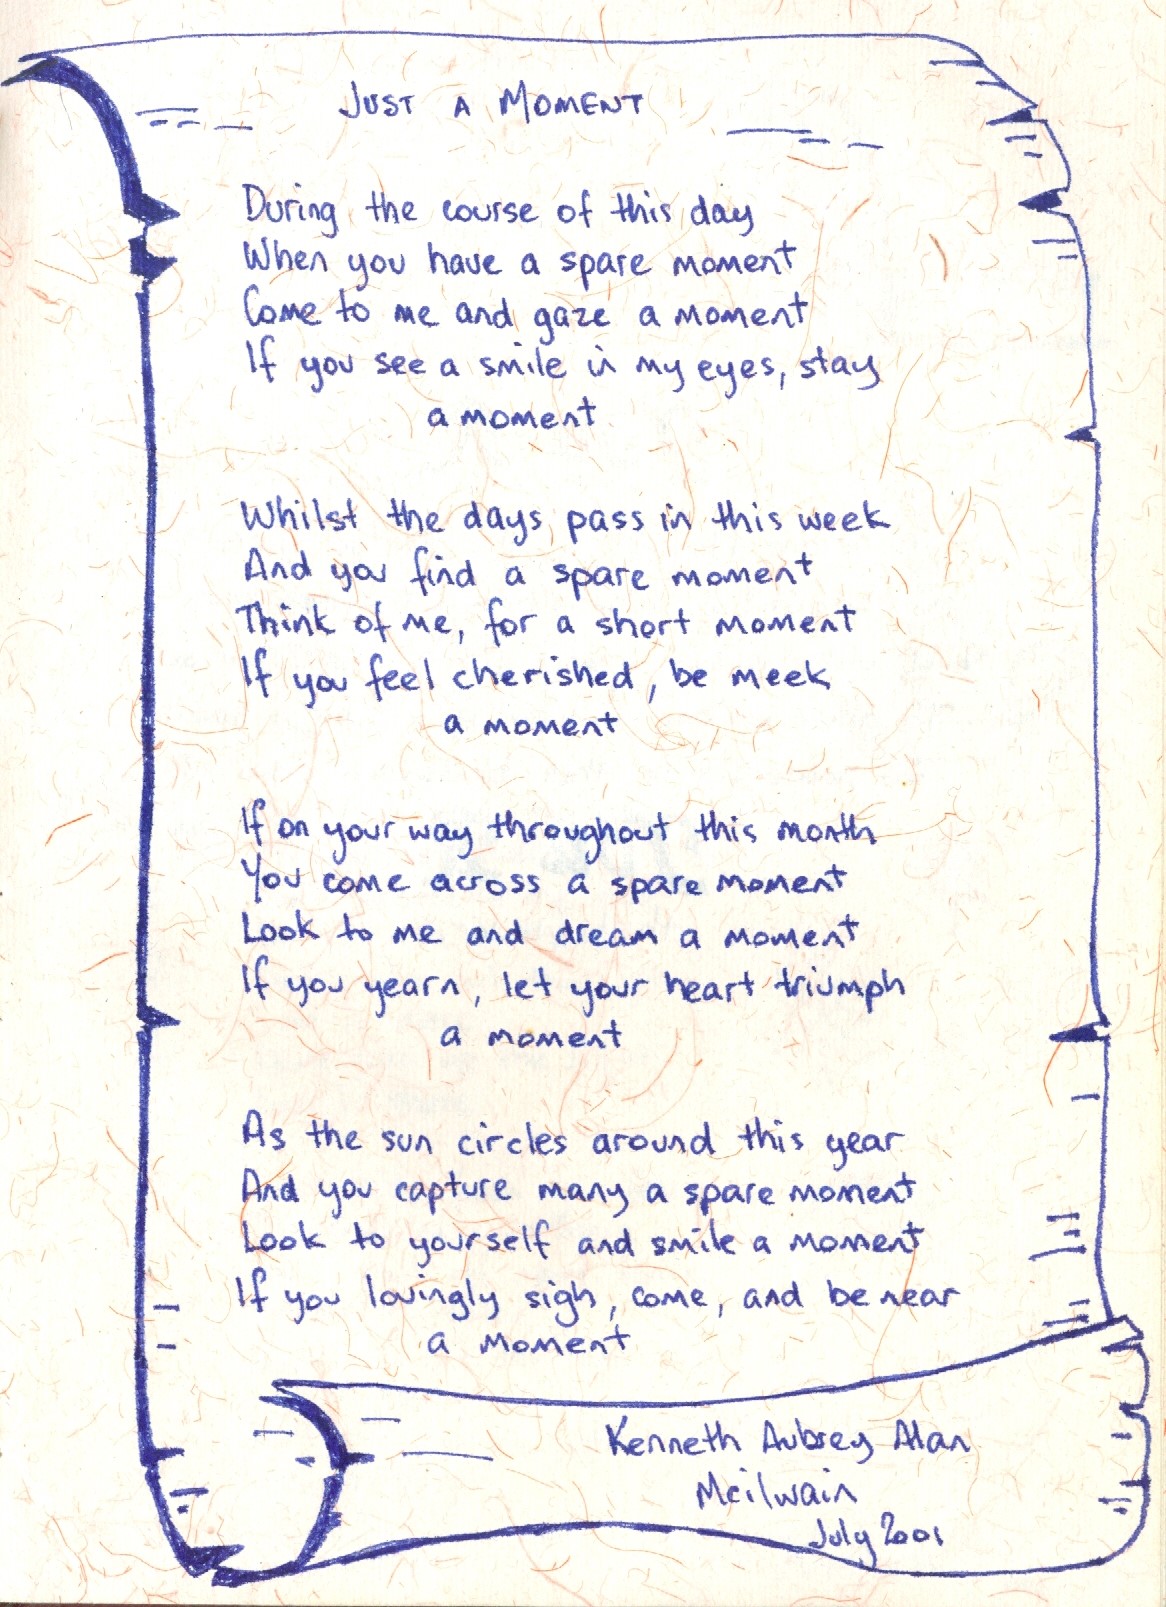 Just a Moment
During the course of this day
When you have a spare moment
Come to me and gaze a moment
If you see a smile in my eyes, stay
a moment
Whilst the days pass in this week
And you find a spare moment
Think of me, for a short moment
If you feel cherished, be meek
a moment
If on your way throughout this month
You come across a spare moment
Look to me and dream a moment
If you yearn, let your heart triumph
a moment
As the sun circles around this year
And you capture many a spare moment
Look to yourself and smile a moment
If you lovingly sigh, come, and be near
a moment
Kenneth Aubrey Alan
McIlwain
July 2001